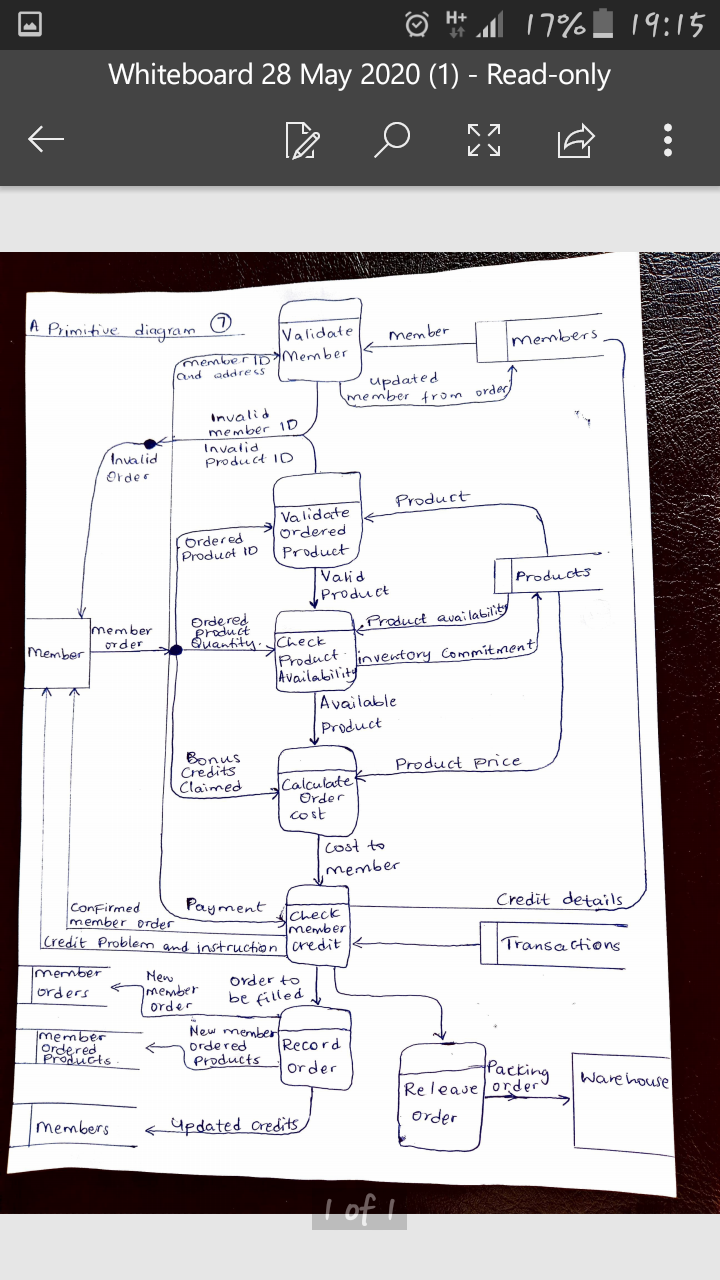 H+
17%
19:15
Whiteboard 28 May 2020 (1) - Read-only
A Primitive diagram 7
Validate
Member
member
members
member ID
and address
updated
member from order
Invalid
member ID
Invalid
Product ID
Invalid
Order
Product
Validate
Ordered
Product
Ordered
Product ID
Products
Valid
Product
Member
member
order
Ordered
Product
Quantity.
Check
Product
Availability
Product availability
inventory commitment
Available
Product
Bonus
Credits
Claimed
Calculate
Order
cost
Product Price
Cost to
member
Payment
Check
member
credit
Credit details
Confirmed
member order
Credit Problem and instruction
Transactions
member
orders
New
member
order
order to
be filled
member
Ordered
Products.
New member
ordered
Products
Record
order
Release
order
Packing
order
Warehouse
Members
updated credits
1 of 1